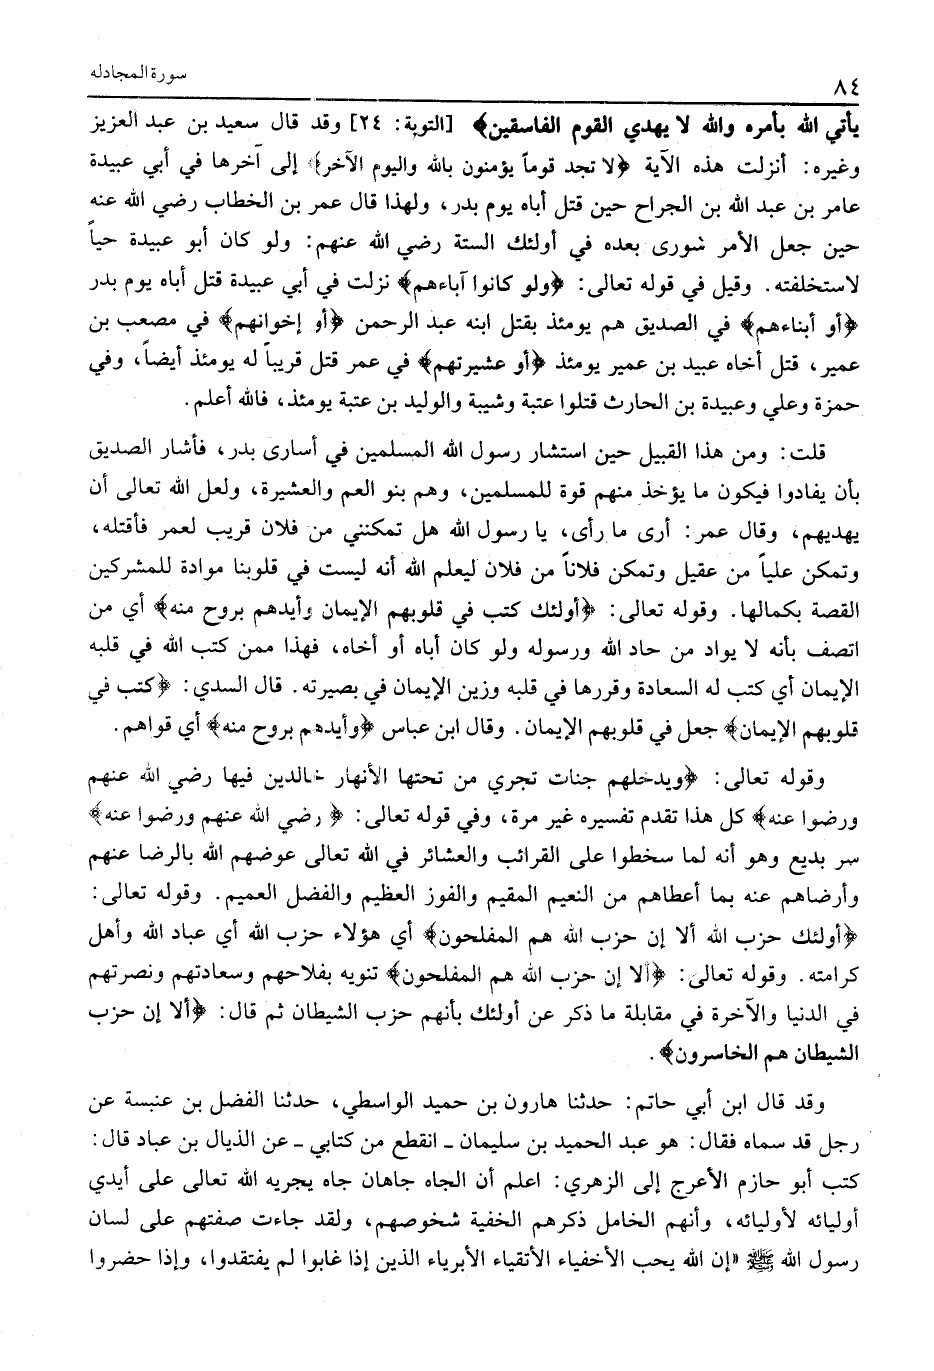 ٨٤
سورة المجادله
يأتي الله بأمره والله لا يهدي القوم الفاسقين﴾ [التوبة: ٢٤] وقد قال سعيد بن عبد العزيز
وغيره: أنزلت هذه الآية ﴿لا تجد قوماً يؤمنون بالله واليوم الآخر﴾ إلى آخرها في أبي عبيدة
عامر بن عبد الله بن الجراح حين قتل أباه يوم بدر، ولهذا قال عمر بن الخطاب رضي الله عنه
حين جعل الأمر شورى بعده في أولئك الستة رضي الله عنهم: ولو كان أبو عبيدة حياً
لاستخلفته. وقيل في قوله تعالى: ﴿ولو كانوا آباءهم﴾ نزلت في أبي عبيدة قتل أباه يوم بدر
﴿أو أبناءهم﴾ في الصديق هم يومئذ بقتل ابنه عبد الرحمن ﴿أو إخوانهم﴾ في مصعب بن
عمير، قتل أخاه عبيد بن عمير يومئذ ﴿أو عشيرتهم﴾ في عمر قتل قريباً له يومئذ أيضاً، وفي
حمزة وعلي وعبيدة بن الحارث قتلوا عتبة وشيبة والوليد بن عتبة يومئذ، فالله أعلم.
قلت: ومن هذا القبيل حين استشار رسول الله المسلمين في أسارى بدر، فأشار الصديق
بأن يفادوا فيكون ما يؤخذ منهم قوة للمسلمين، وهم بنو العم والعشيرة، ولعل الله تعالى أن
يهديهم، وقال عمر: أرى ما رأى، يا رسول الله هل تمكنني من فلان قريب لعمر فأقتله،
وتمكن علياً من عقيل وتمكن فلاناً من فلان ليعلم الله أنه ليست في قلوبنا موادة للمشركين
القصة بكمالها. وقوله تعالى: ﴿أولئك كتب في قلوبهم الإيمان وأيدهم بروح منه﴾ أي من
اتصف بأنه لا يواد من حاد الله ورسوله ولو كان أباه أو أخاه، فهذا ممن كتب الله في قلبه
الإيمان أي كتب له السعادة وقررها في قلبه وزين الإيمان في بصيرته. قال السدي: ﴿كتب في
قلوبهم الإيمان﴾ جعل في قلوبهم الإيمان. وقال ابن عباس ﴿وأيدهم بروح منه﴾ أي قواهم.
وقوله تعالى: ﴿ويدخلهم جنات تجري من تحتها الأنهار خالدين فيها رضي الله عنهم
ورضوا عنه﴾ كل هذا تقدم تفسيره غير مرة، وفي قوله تعالى: ﴿رضي الله عنهم ورضوا عنه﴾
سر بديع وهو أنه لما سخطوا على القرائب والعشائر في الله تعالى عوضهم الله بالرضا عنهم
وأرضاهم عنه بما أعطاهم من النعيم المقيم والفوز العظيم والفضل العميم. وقوله تعالى:
﴿أولئك حزب الله ألا إن حزب الله هم المفلحون﴾ أي هؤلاء حزب الله أي عباد الله وأهل
كرامته. وقوله تعالى: ﴿ألا إن حزب الله هم المفلحون﴾ تنويه بفلاحهم وسعادتهم ونصرتهم
في الدنيا والآخرة في مقابلة ما ذكر عن أولئك بأنهم حزب الشيطان ثم قال: ﴿ألا إن حزب
الشيطان هم الخاسرون﴾.
وقد قال ابن أبي حاتم: حدثنا هارون بن حميد الواسطي، حدثنا الفضل بن عنبسة عن
رجل قد سماه فقال: هو عبد الحميد بن سليمان ـ انقطع من كتابي ـ عن الذيال بن عباد قال:
كتب أبو حازم الأعرج إلى الزهري: اعلم أن الجاه جاهان جاه يجريه الله تعالى على أيدي
أوليائه لأوليائه، وأنهم الخامل ذكرهم الخفية شخوصهم، ولقد جاءت صفتهم على لسان
رسول الله ﷺ «إن الله يحب الأخفياء الأتقياء الأبرياء الذين إذا غابوا لم يفتقدوا، وإذا حضروا